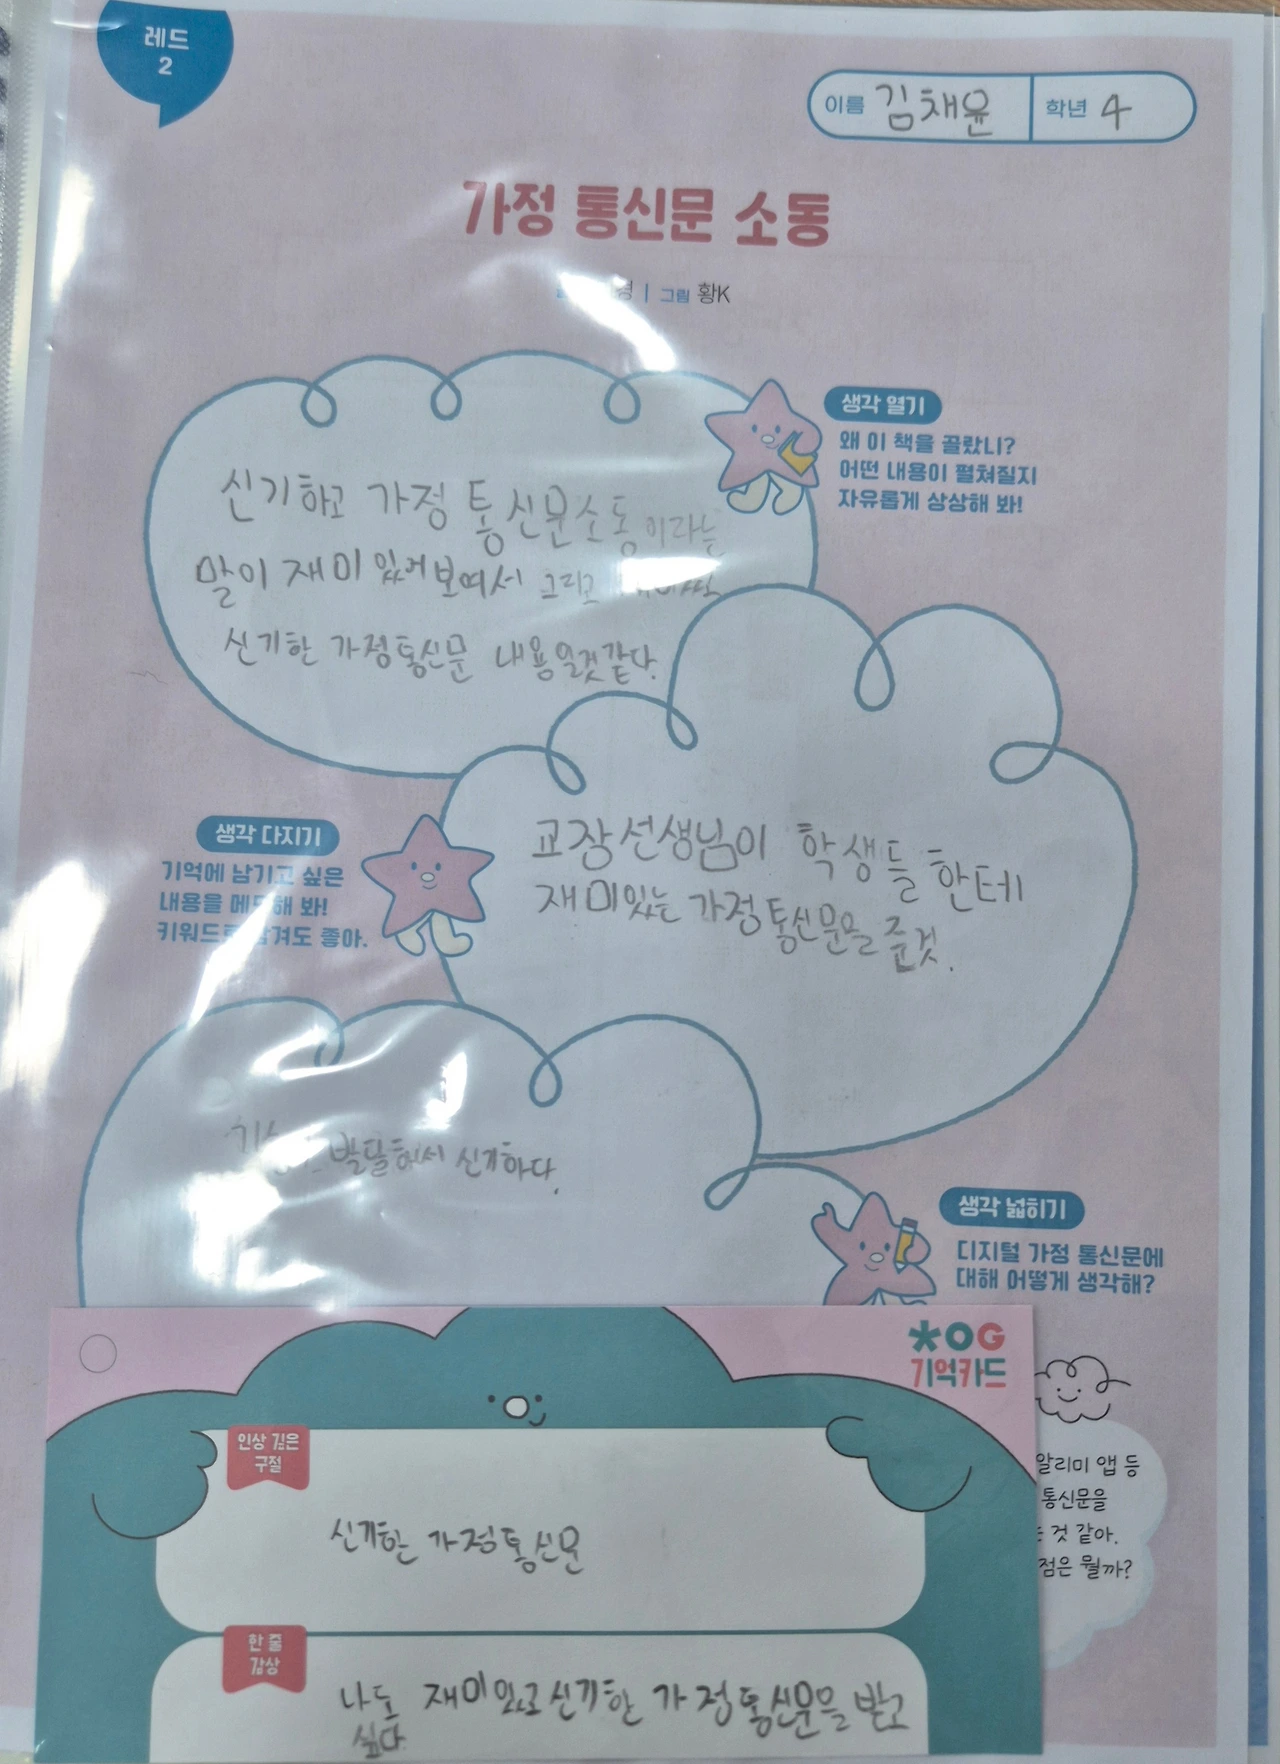 레드
2
이름 김채윤 학년 4
가정 통신문 소동
그림 황K
생각 열기
왜 이 책을 골랐니?
어떤 내용이 펼쳐질지
자유롭게 상상해 봐!
신기하고 가정 통신문소동이라는
말이 재미있어보여서 그리고
신기한 가정통신문 내용일것같다.
생각 다지기
기억에 남기고 싶은
내용을 메모해 봐!
키워드로 남겨도 좋아.
교장선생님이 학생들 한테
재미있는 가정통신문을 준것.
발달해서 신기하다.
생각 넓히기
디지털 가정 통신문에
대해 어떻게 생각해?
알리미 앱 등
통신문을
것 같아.
점은 뭘까?
기억카드
인상 깊은
구절
신기한 가정통신문
한 줄
감상
나도 재미있고신기한 가정통신문을 받고
싶다.